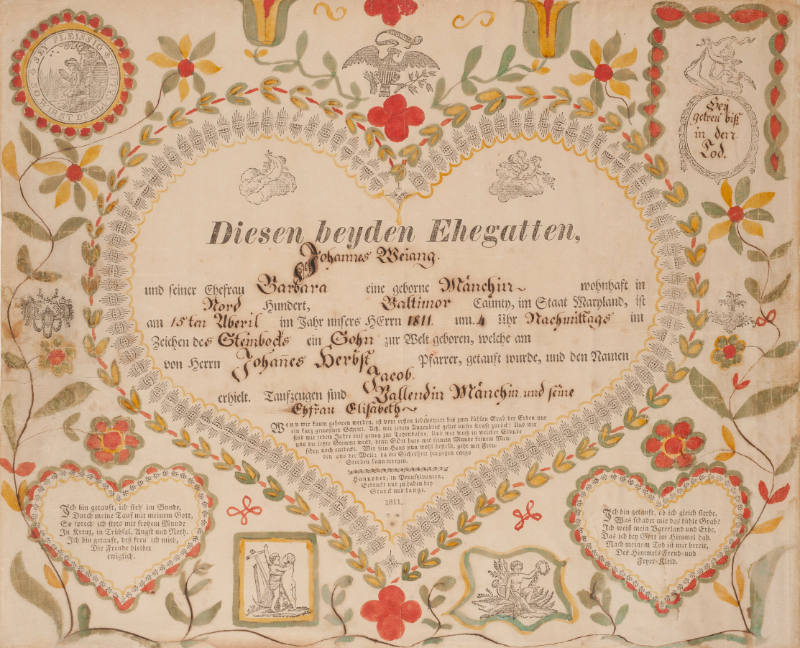 SEY FLEISSIG &
Sey
getreu biß
in den
Tod.
Diesen beyden Ehegatten,
Johannes Weiang.
und seiner Ehefrau Barbara eine geborne Mänchin wohnhaft in
Nord Hundert, Baltimor Caunty, im Staat Maryland, ist
am 15ten Aberil im Jahr unsers HErrn 1811 um 4 Uhr Nachmittags im
Zeichen des Steinbocks ein Sohn zur Welt geboren, welche am
von Herrn Johañes Herbst Pfarrer, getauft wurde, und den Namen
Jacob.
erhielt. Taufzeugen sind Vallendin Mänchin und seine
Ehfrau Elisabeth
Wenn wir kaum geboren werden, ist vom ersten Lebenstritt bis zum kühlen Grab der Erden nur
ein kurz gemeßner Schritt. Ach mit jedem Augenblick gehet unsre Kraft zurück! Und wir
sind mit jedem Jahre
Sterben kann
Hannover, in Pennsylvanien,
Gedruckt und zu haben bey
Starck und Lange.
1811.
Ich bin getauft, ich steh' im Bunde,
Durch meine Tauf mit meinem Gott,
So sprech' ich stets mit frohem Munde
In Kreuz, in Trübsal, Angst und Noth.
Ich bin getauft, deß freu ich mich,
Die Freude bleibet
ewiglich.
Ich bin getauft, ob ich gleich sterbe,
Was schadet mir das kühle Grab?
Ich weiß mein Vaterland und Erbe,
Das ich bey Gott im Himmel hab.
Nach meinem Tod ist mir bereit,
Des Himmels Freud- und
Feyer-Kleid.